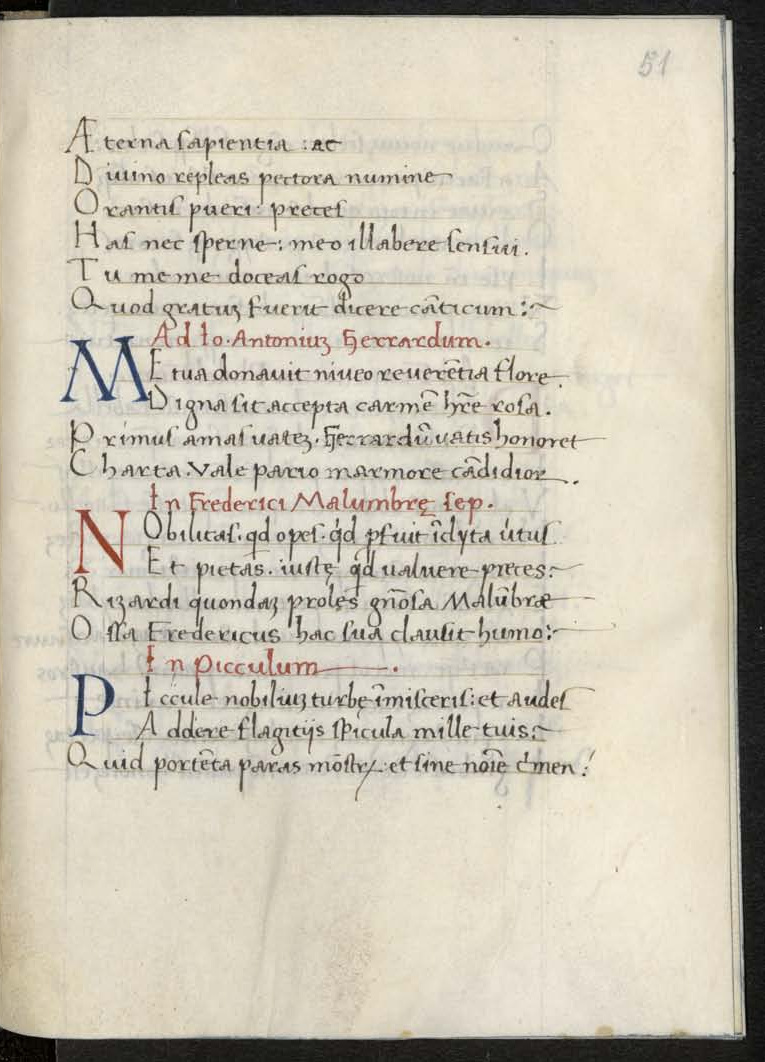 51
Æterna sapientia : ac
Diuino repleas pectora numine
Orantis pueri : preces
Has nec sperne : meo illabere sensui.
Tu me me doceas rogo
Quod gratuʒ fuerit dicere cāticum :~
Ad Io. Antoniuʒ Gerrardum.
ME tua donauit niueo reuerētia flore.
Digna sit accepta carmē hr̄e rosa.
Primus amas uateʒ. Gerrardū uatis honoret
Charta. Vale pario marmore cādidior.
In Frederici Malumbrę sep.
NObilitas. qd opes. qd pfuit īclyta útus
Et pietas. iustę qd ualuere preces :~
Rizardi quondaʒ proles gn̄osa Malūbræ
Ossa Fredericus hac sua clausit humo :~
In Picculum.
PIccule nobiliuʒ turbę īmisceris : et audes
Addere flagitijs spicula mille tuis :~
Quid portēta paras mōstrꝝ : et sine noīe c̍men :